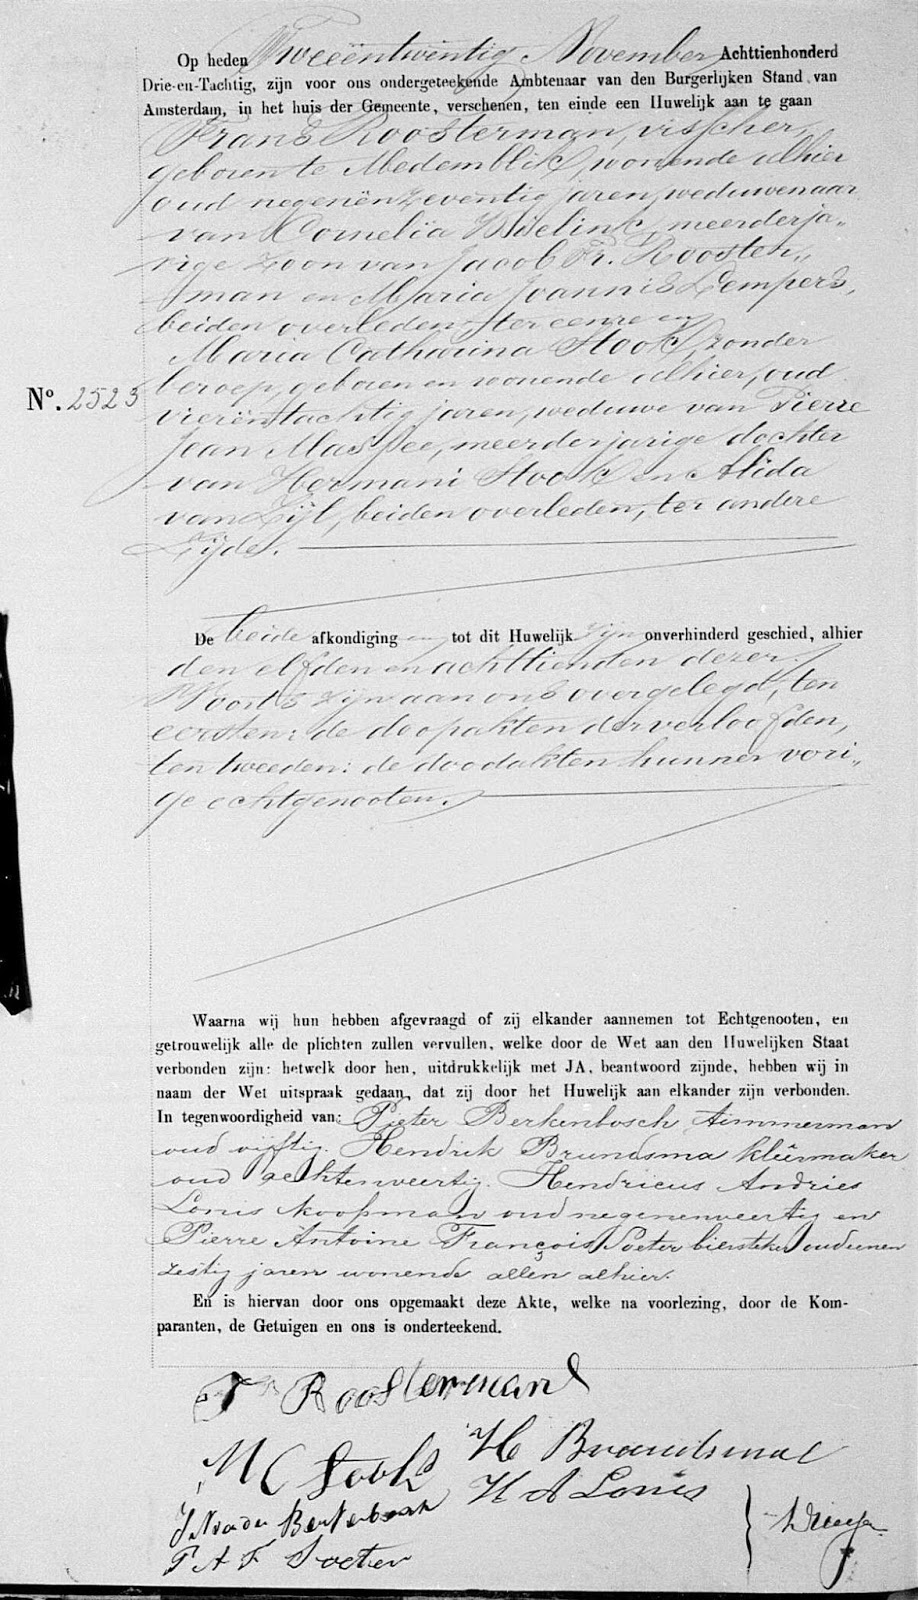 Op heden Tweeëntwintig November Achttienhonderd
Drie-en-Tachtig, zijn voor ons ondergeteekende Ambtenaar van den Burgerlijken Stand van
Amsterdam, in het huis der Gemeente, verschenen, ten einde een Huwelijk aan te gaan
Frans Roosterman, visscher,
geboren te Medemblik, wonende alhier
oud negenënzeventig jaren, weduwenaar
van Cornelia meerderja„
rige zoon van Jacob Fr. Rooster„
man en Maria Joannis Lempers,
beiden overleden, ter eenre en
Maria Catharina Stook, zonder
beroep, geboren en wonende alhier, oud
No. 2523
vierëntachtig jaren, weduwe van Pierre
Jean Massee, meerderjarige dochter
van Hermani Stook en Alida
van Zijl, beiden overleden, ter andere
Zijde.
De beide afkondigingen tot dit Huwelijk zijn onverhinderd geschied, alhier
den elfden en achttienden dezer.
Voorts zijn aan ons overgelegd, ten
eersten: de doopakten der verloofden,
ten tweeden: de doodakten hunner vori„
ge echtgenooten.
Waarna wij hun hebben afgevraagd of zij elkander aannemen tot Echtgenooten, en
getrouwelijk alle de plichten zullen vervullen, welke door de Wet aan den Huwelijken Staat
verbonden zijn: hetwelk door hen, uitdrukkelijk met JA, beantwoord zijnde, hebben wij in
naam der Wet uitspraak gedaan, dat zij door het Huwelijk aan elkander zijn verbonden.
In tegenwoordigheid van: Pieter Berkenbosch timmerman
oud vijftig. Hendrik Brandsma kleermaker
oud achtenveertig. Hendricus Andries
Lonis koopman oud negenenveertig en
Pierre Antoine François Soeter biersteker oud eenen
zestig jaren wonende allen alhier.
En is hiervan door ons opgemaakt deze Akte, welke na voorlezing, door de Kom-
paranten, de Getuigen en ons is onderteekend.
Fr Roosterman
M C Stook H Brandsma
Berkenbosch H A Lonis
P A F Soeter